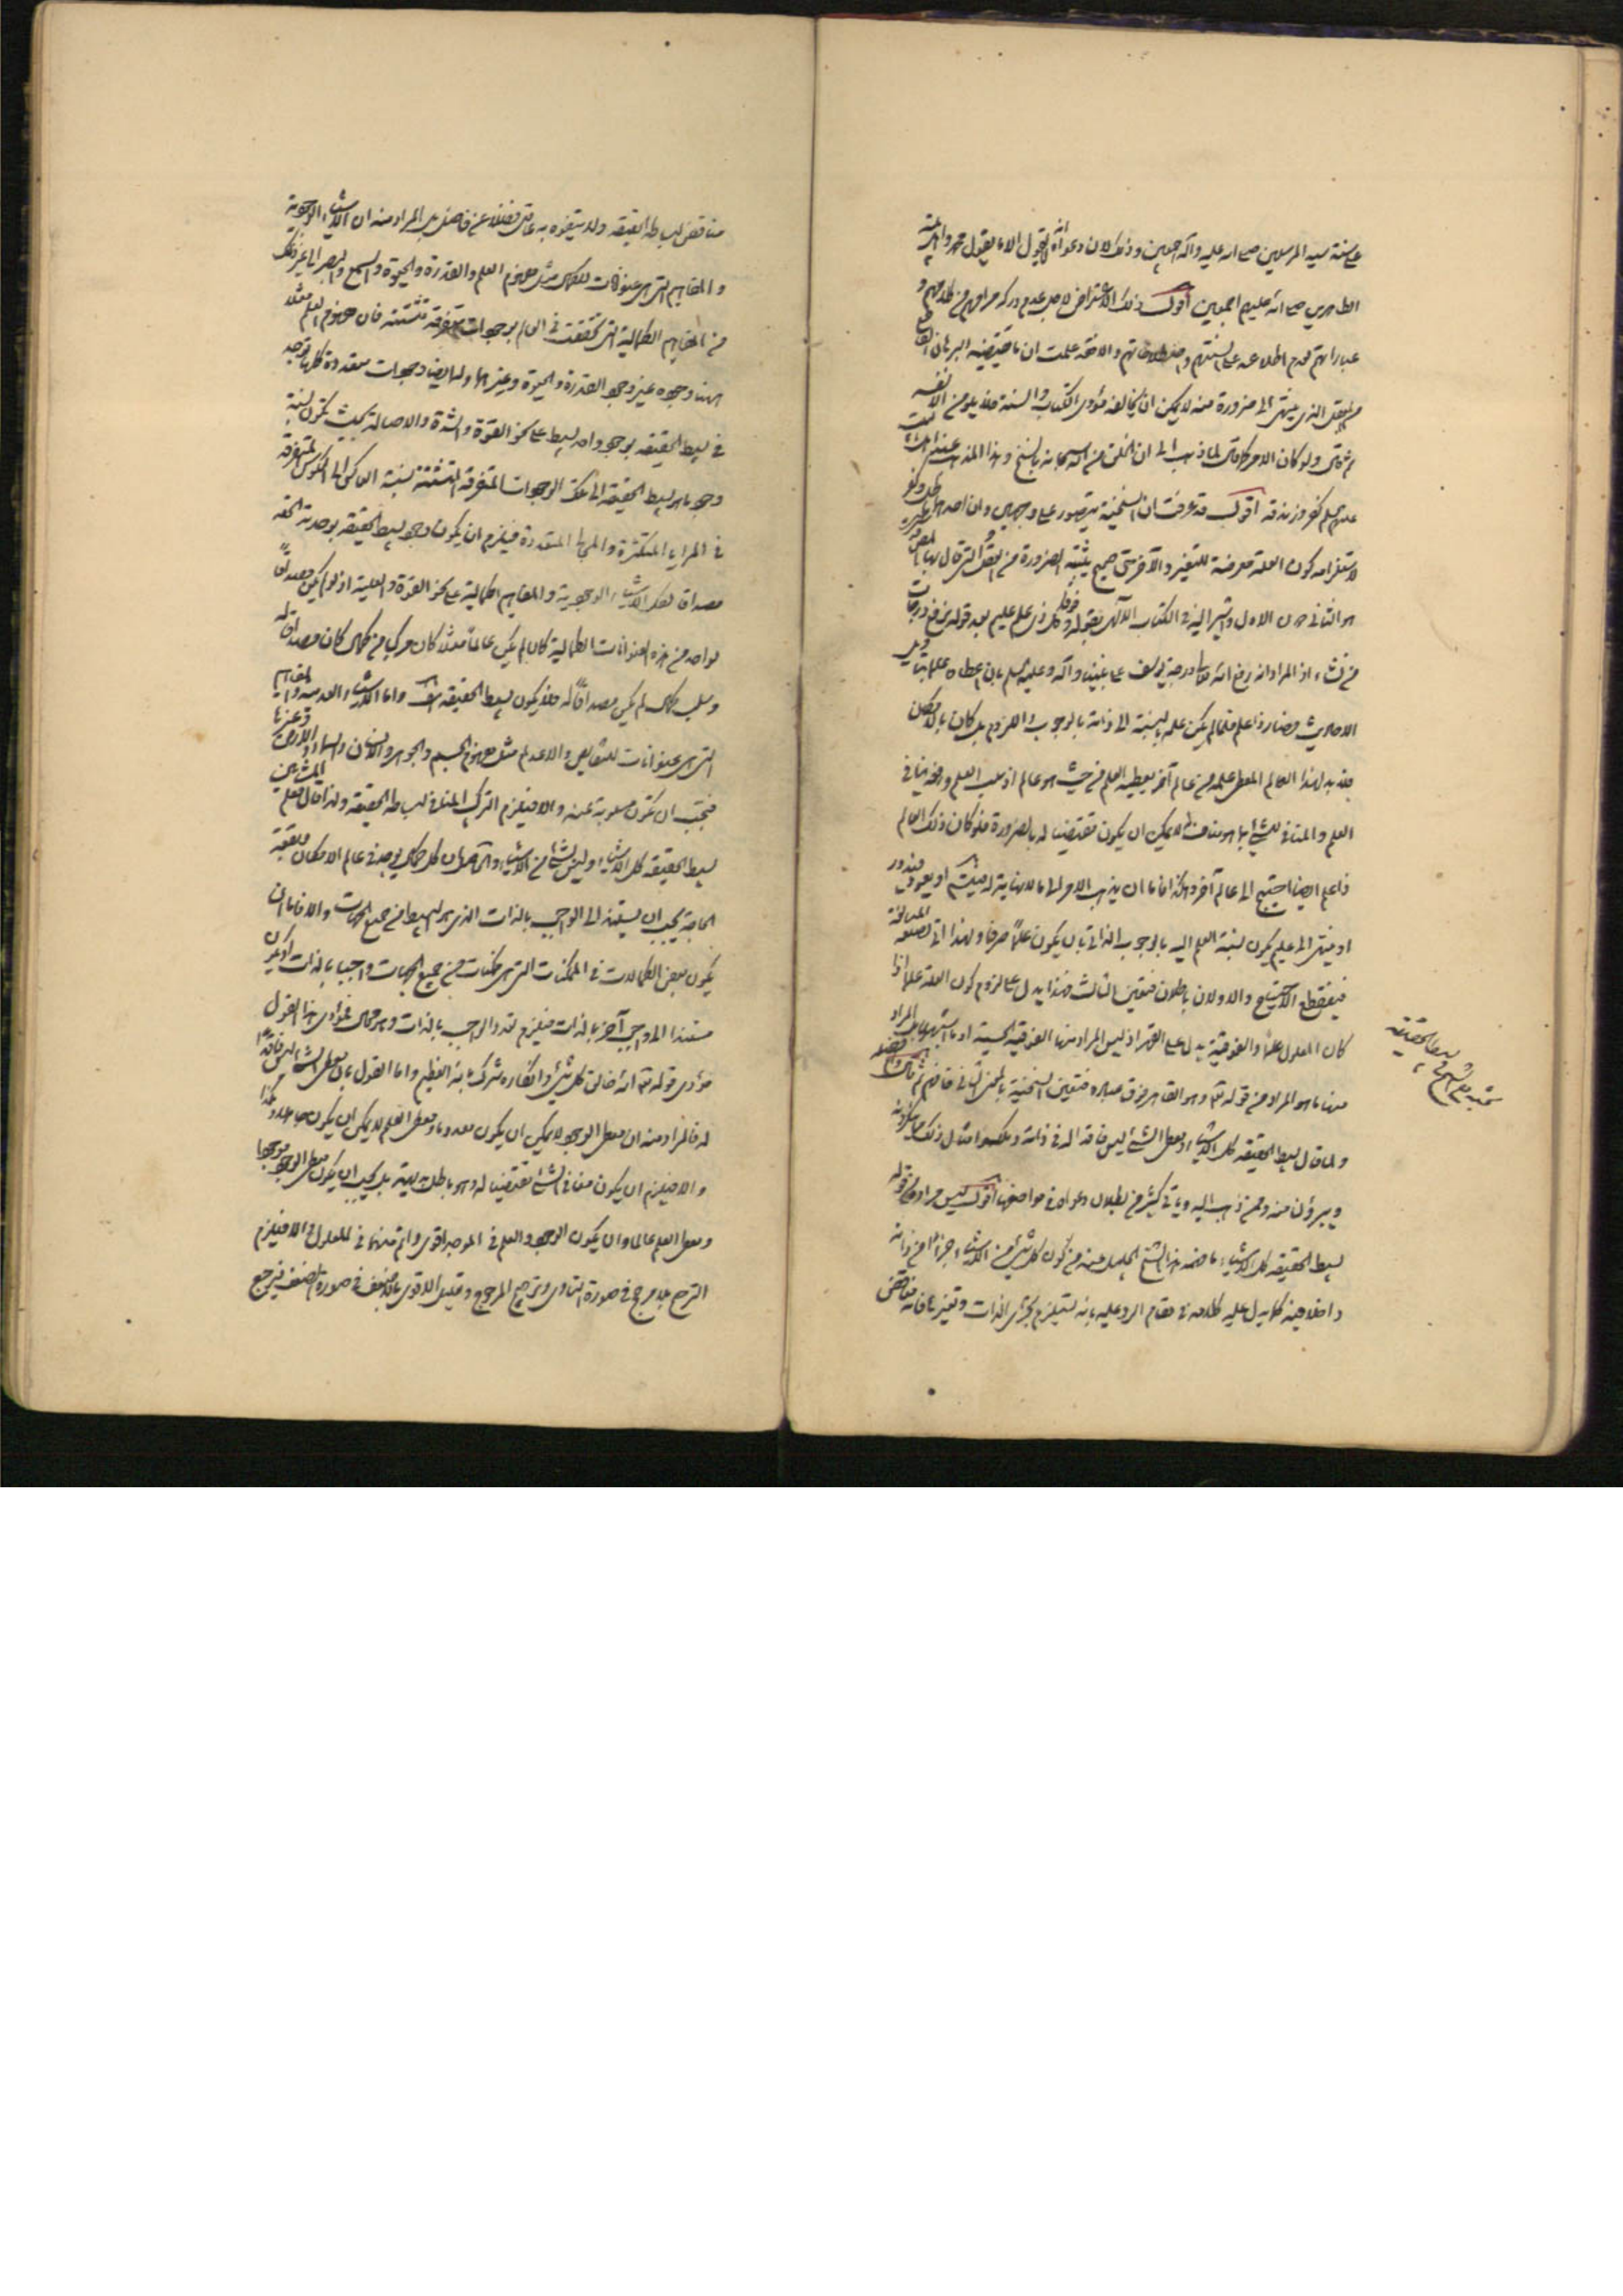 على سنة سيد المرسلين صلى الله عليه وآله اجمعين وذلك لان دعواه انه لا يقول الا ما يقول محمد واهل بيته
الطاهرين صلى الله عليهم اجمعين اقول ذلك الاعتراض لاجل عدم دركه مرامهم من كلامهم و
عباراتهم لعدم اطلاعه على السنتهم واصطلاحاتهم والا فقد علمت ان ما يقتضيه البرهان القاطع
العقل الذى ينتهى الى ضرورة منه لا يمكن ان يخالفه مؤدى الكتاب والسنة فلا يلومن الا نفسه
ثم قال ولو كان الامر كما قال لما ذهب الى ان الخلق من الله سبحانه بالسنخ وهذا المذهب عند ائمتنا
عليهم السلم كفر وزندقه اقول قد عرفت ان السنخية يتصور على وجهين وان احدهما باطل وكفر
لاستلزامه كون العلة معرضة للتغير والآخر حق صحيح يثبته الضرورة من العقل التى قال بها المعترض
هو الثانى دون الاول ويشير اليه فى الكتاب الآلهى بقوله وفوق كل ذى علم عليم بعد قوله نرفع درجات
من نشاء اذ المراد انه رفع الله تعالى درجة يوسف على نبينا وآله وعليه السلم بان اعطاه علما بتأويل
الاحاديث فصار ذا علم فلما لم يكن علمه بالنسبة الى ذاته بالوجوب واللزوم بل كان بالامكان
فلا بد لهذا العالم المعطى علمه من عالم آخر يعطيه العلم من حيث هو عالم اذ سلب العلم وفقده ينافى
العلم والمنافى للشئ بما هو مناف له لا يمكن ان يكون مقتضيا له بالضرورة فلو كان ذلك العالم
ذا علم ايضا احتيج الى عالم آخر وهكذا فاما ان يذهب الامر الى ما لا نهاية له فيتسلسل او يعود فيدور
او ينتهى الى عليم يكون نسبة العلم اليه بالوجوب الذاتى بان يكون علما صرفا ولهذا اتى بصيغة المبالغة
فينقطع الاحتياج والاولان باطلان فتعين الثالث فهذا يدل على لزوم كون العلة علما اذا
كان المعلول علما والفوقية يدل على القهر اذ ليس المراد منها الفوقية الحسية او ما اشبهها بل المراد
منها ما هو المراد من قوله تعالى وهو القاهر فوق عباده فتعين السنخية بالمعنى الثانى فافهم ثم قال
ولما قال بسيط الحقيقة كل الاشياء ومعطى الشئ ليس فاقدا له فى ذاته وامثال ذلك
ويبرؤن منه وممن ذهب اليه ويأتى كثير من بطلان دعواه فى مواضعها اقول ليس مراده من قوله
بسيط الحقيقة كل الاشياء ما فهمه هذا الشيخ الجليل منه من كون كل شئ من الاشياء جزأ من ذاته
داخلا فيه كما يدل عليه كلامه فى مقام الرد عليه بانه يستلزم تجزى الذات وتغيرها فانه مناقض
بسيط الحقيقة
مناقض لبساطة الحقيقة ولا يتفوه به عاقل فضلا عن فاضل بل المراد منه ان الاشياء الوجودية
والمفاهيم التى هى عنوانات للكمال مثل مفهوم العلم والقدرة والحيوة والسمع والبصر الى غير ذلك
من المفاهيم الكمالية التى تحققت فى العالم بوجودات متفرقة متشتتة فان مفهوم العلم مثلا
له هنا وجود غير وجود القدرة والحيوة وغيرها ولها ايضا وجودات متعددة كلها توجد
فى بسيط الحقيقة بوجود واحد بسيط على نحو القوة والشدة والاصالة بحيث يكون نسبة
وجود ما هو بسيط الحقيقة الى تلك الوجودات المتفرقة المتشتتة نسبة العاكس الى العكوس المتفرقة
فى المرايا المتكثرة والمجالى المتعددة فيلزم ان يكون وجود بسيط الحقيقة بوحدته الحقة
مصداقا لكل الاشياء الوجودية والمفاهيم الكمالية على نحو القوة والعلية اذ لو لم يكن مصداقا
لواحد من هذه العنوانات الكمالية كان لم يكن عالما مثلا كان مركبا من كمال كان مصداقا له
وسلب كمال لم يكن مصداقا له فلا يكون بسيط الحقيقة هف واما الاشياء العدمية والمفاهيم
التى هى عنوانات للنقايص والاعدام مثل مفهوم الجسم والجوهر والانسان والسماء والارض وغيرها
فيجب ان تكون مسلوبة عنه والا فيلزم التركيب المنافى لبساطة الحقيقة ولذا قال معلم المشائين
بسيط الحقيقة كل الاشياء وليس بشئ من الاشياء والحاصل ان كل كمال يوجد فى عالم الامكان فلفقه
الحاجة يجب ان يستند الى الواجب بالذات الذى هو البسيط من جميع الجهات والا فاما ان
يكون بعض الكمالات فى الممكنات التى هى ممكنات من جميع الجهات واجبا بالذات او يكون
مستندا الى واجب آخر بالذات فيلزم تعدد الواجب بالذات وهو محال فمؤدى هذا القول
مؤدى قوله تعالى الله خالق كل شئ وانكاره شرك بالله العظيم واما القول بان معطى الشئ ليس فاقدا
له فالمراد منه ان معطى الوجود لا يمكن ان يكون معدوما ومعطى العلم لا يمكن ان يكون جاهلا وهكذا
والا فيلزم ان يكون منافى الشئ مقتضيا له وهو باطل بديهة بل يجب ان يكون معطى الوجود موجودا
ومعطى العلم عالما وان يكون الوجود والعلم فى الموجد اقوى واتم منهما فى المعلول والا فيلزم
الترجيح بلا مرجح فى صورة التساوى وترجيح المرجوح وتعليل الاقوى بالاضعف فى صورة الضعف فيرجع